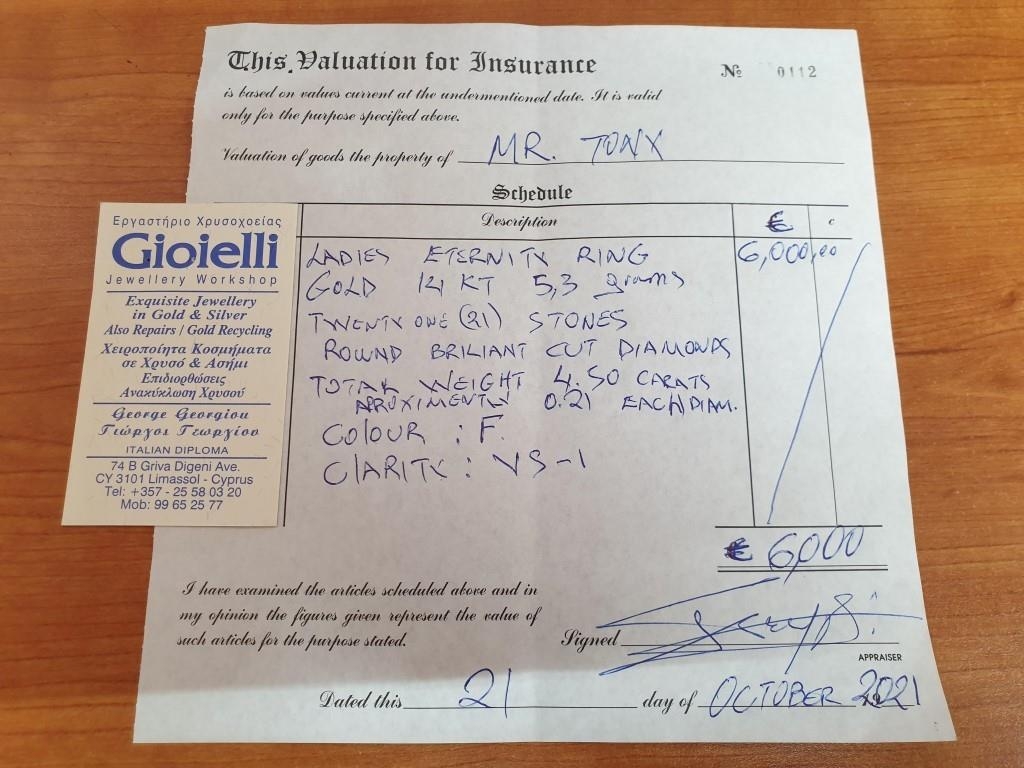 This Valuation for Insurance
№ 0112
is based on values current at the undermentioned date. It is valid
only for the purpose specified above.
Valuation of goods the property of MR. TONY
Schedule
Description € c
LADIES ETERNITY RING 6,000,00
GOLD 14 KT 5,3 grams
TWENTY ONE (21) STONES
ROUND BRILIANT CUT DIAMONDS
TOTAL WEIGHT 4.50 CARATS
APROXIMENTLY 0.21 EACH DIAM.
COLOUR : F.
CLARITY : VS-1
€ 6,000
I have examined the articles scheduled above and in
my opinion the figures given represent the value of
such articles for the purpose stated.
Signed
APPRAISER
Dated this 21 day of OCTOBER 2021
Εργαστήριο Χρυσοχοείας
Gioielli
Jewellery Workshop
Exquisite Jewellery
in Gold & Silver
Also Repairs / Gold Recycling
Χειροποίητα Κοσμήματα
σε Χρυσό & Ασήμι
Επιδιορθώσεις
Ανακύκλωση Χρυσού
George Georgiou
Γιώργος Γεωργίου
ITALIAN DIPLOMA
74 B Griva Digeni Ave.
CY 3101 Limassol - Cyprus
Tel: +357 - 25 58 03 20
Mob: 99 65 25 77